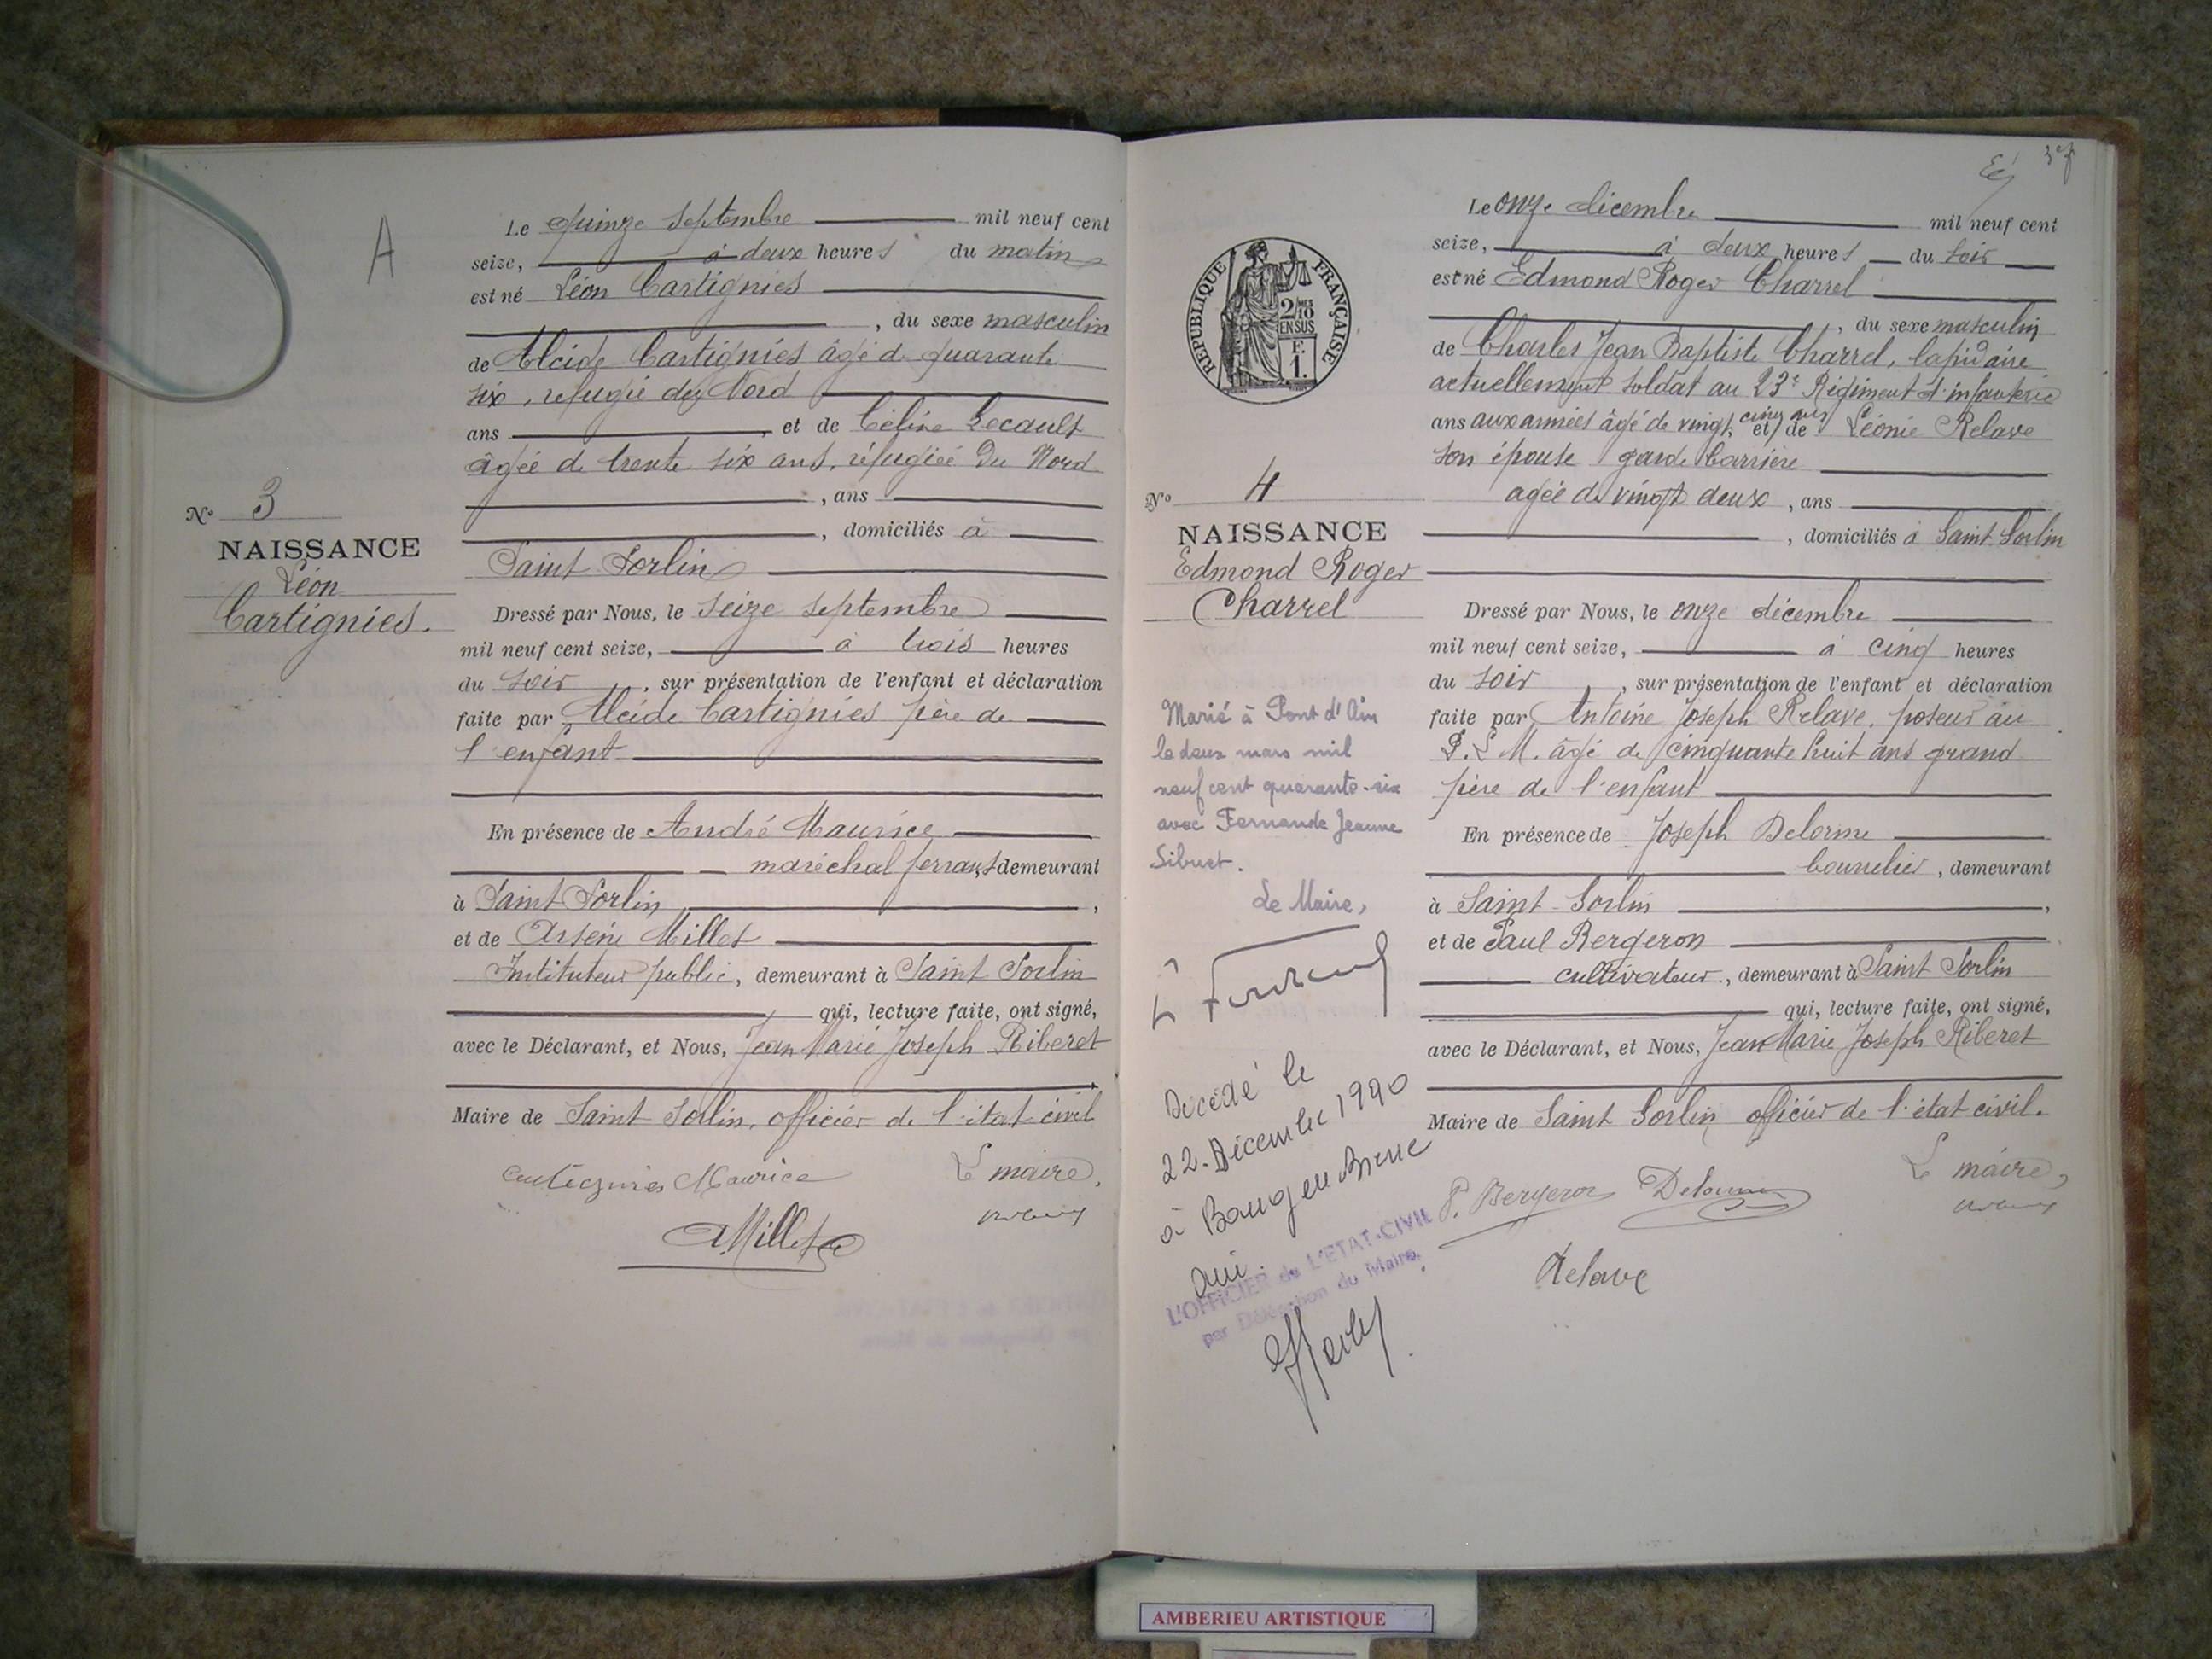 A
Le quinze septembre mil neuf cent
seize, à deux heures du matin
est né Léon Cartignies
, du sexe masculin
de Alcide Cartignies âgé de quarante
six, réfugié du Nord
ans et de Céline Lecault
âgée de trente six ans, réfugiée du Nord
, ans
, domiciliés à
Saint Sorlin
N° 3
NAISSANCE
Léon
Cartignies.
Dressé par Nous, le seize septembre
mil neuf cent seize, à trois heures
du soir, sur présentation de l'enfant et déclaration
faite par Alcide Cartignies père de
l'enfant
En présence de André Maurice
maréchal ferrant, demeurant
à Saint Sorlin,
et de Arsène Millet
Instituteur public, demeurant à Saint Sorlin
qui, lecture faite, ont signé,
avec le Déclarant, et Nous, Jean Marie Joseph Riberet
Maire de Saint Sorlin, officier de l'état civil
Cartignies Maurice Le maire,
AMillet
3e f
Le onze décembre mil neuf cent
seize, à deux heures du soir
est né Edmond Roger Charrel
, du sexe masculin
de Charles Jean Baptiste Charrel, lapidaire
actuellement soldat au 23e Régiment d'infanterie
ans aux armées âgé de vingt cinq ans et de Léonie Relave
son épouse garde barrière
agée de vingt deux, ans
, domiciliés à Saint Sorlin
REPUBLIQUE FRANÇAISE
2/10 EN SUS
F.
1.
N° 4
NAISSANCE
Edmond Roger
Charrel
Dressé par Nous, le onze décembre
mil neuf cent seize, à cinq heures
du soir, sur présentation de l'enfant et déclaration
faite par Antoine Joseph Relave, poseur au
P.L.M. âgé de cinquante huit ans grand
père de l'enfant
En présence de Joseph Delorme
bourrelier, demeurant
à Saint-Sorlin,
et de Paul Bergeron
cultivateur, demeurant à Saint Sorlin
qui, lecture faite, ont signé,
avec le Déclarant, et Nous, Jean Marie Joseph Riberet
Maire de Saint Sorlin officier de l'état civil.
P. Bergeron Delorme Le maire,
Relave
Marié à Pont d'Ain
le deux mars mil
neuf cent quarante-six
avec Fernande Jeanne
Sibuet.
Le Maire,
Décédé le
22 Décembre 1990
à Bourg en Bresse
Ain.
L'OFFICIER de L'ETAT-CIVIL
par Délégation du Maire,
AMBERIEU ARTISTIQUE